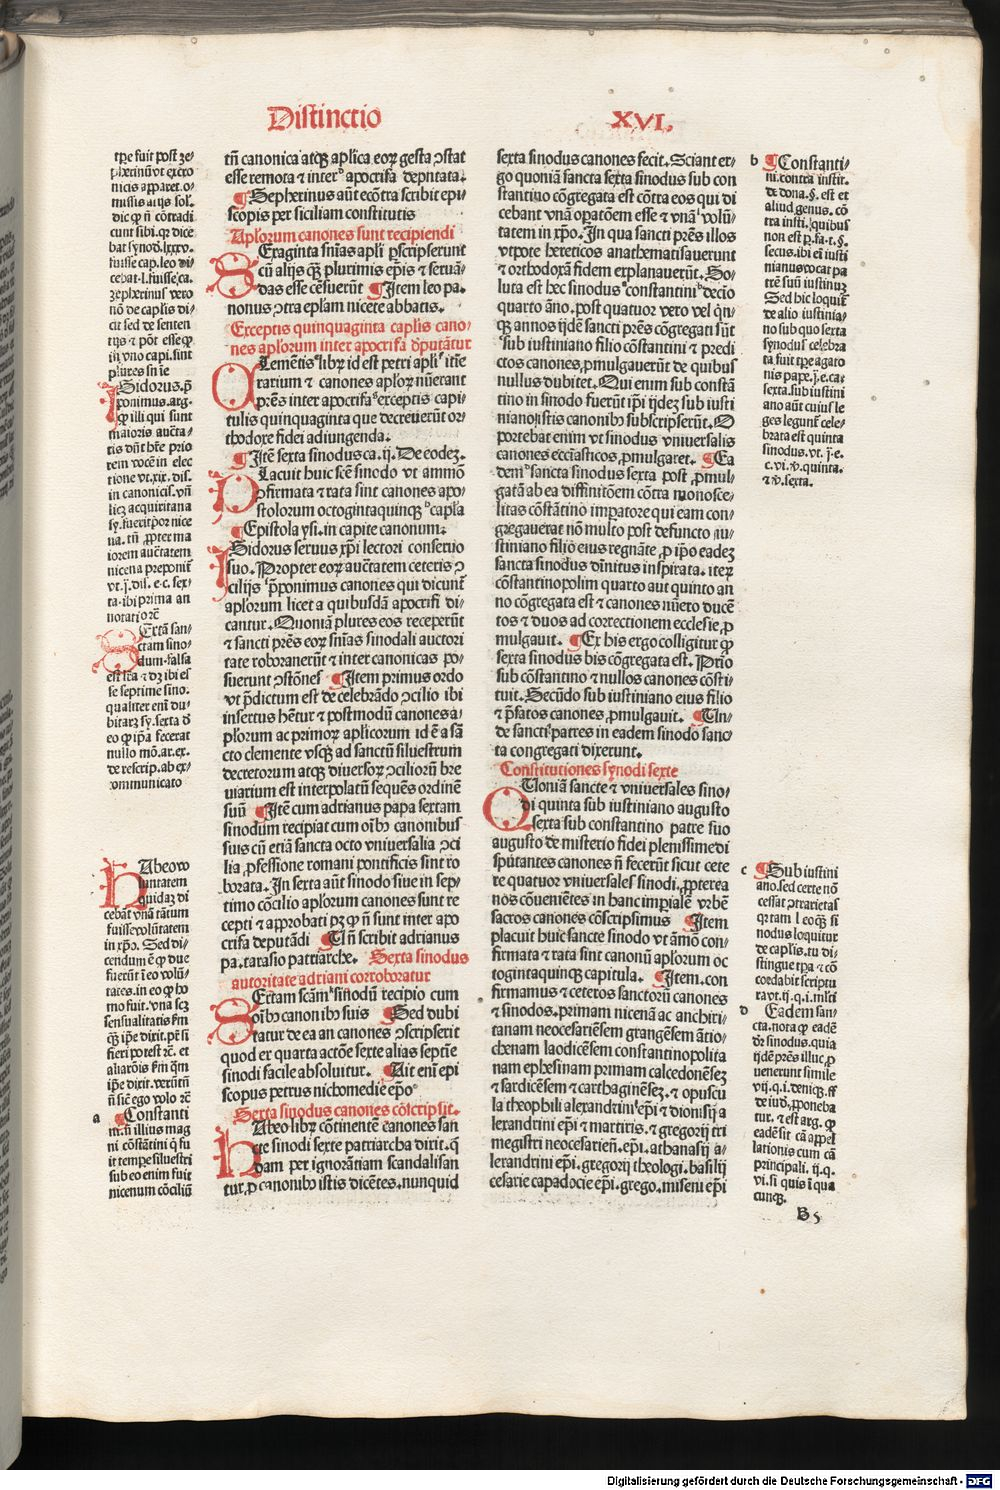 Distinctio XVI.
tꝑe fuit post ze-
pherinũ vt ex cro
nicis apparet. o-
missis aliis sol.
dic ꝙ ñ cõtradi
cunt sibi. qꝛ dice
bat synod. lxxv.
fuisse cap. leo di-
cebat. l. fuisse ca.
zepherinus vero
nõ de caplis di-
cit sed de senten
tijs ⁊ põt esse ꝙ
in vno capi. sint
plures snĩe
ISidorus. p̃
ponimus. arg.
ꝙ illi qui sunt
maioris aucta-
tis dñt hr̃e prio
rem vocẽ in elec
tione vt. xix. dis.
in canonicis. vñ
licꝫ acquiritana
sy. fuerit por nice
na. tñ ꝓpter ma
iorem auctatem
nicena preponit̃
vt. j. dis. e. c. sex-
ta. ibi prima an
notatio rc̃
SExtã san-
ctam sino-
dum. falsa
est lr̃a ⁊ dꝫ ibi es
se septime sino.
qualiter eni du-
bitarꝫ sy. sexta d̃
eo ꝙ ip̃a fecerat
nullo mõ. ar. ex.
de rescrip. ab ex-
cõmunicato
HAbeo vo
luntatem
quidaꝫ di
cebãt vnã tãtum
fuisse volũtatem
in xp̃o. Sed di-
cendum ẽ ꝙ due
fuerũt ĩ eo volũ-
tates. in eo ꝙ ho
mo fuit. vna scꝫ
sensualitatis ẜm
quã ip̃e dixit. pr̃ si
fieri potest rc̃. et
alia rõis ẜm quã
ip̃e dixit. verũtñ
ñ sic̃ ego volo rc̃
a ¶Constanti
ni. ñ illius mag
ni cõstãtini ꝗ fu
it tempe siluestri
sub eo enim fuit
nicenum cõciliũ
tñ canonica atqꝫ aplica eoꝝ gesta ↄstat
esse remota ⁊ inter apocrifa deputata.
¶Sepherinus aũt ecõtra scribit epi-
scopis per siciliam constitutis
Aploꝛum canones sunt recipiendi
SExaginta snĩas apli p̃scripserunt
cũ alijs qꝫ plurimis ep̃is ⁊ serua-
das esse cẽsuerũt ¶Item leo pa-
nonus ↄtra eplam nicete abbatis.
Exceptis quinquaginta caplis cano-
nes aploꝛum inter apocrifa d̃putãtur
CLemẽtis libꝝ id est petri apli itñe
rarium ⁊ canones aploꝝ nũerant
pr̃es inter apocrifa exceptis capi-
tulis quinquaginta que decreuerũt or
thodoxe fidei adiungenda.
¶Itẽ sexta sinodus ca. ij. De eodeꝫ.
PLacuit huic scẽ sinodo vt ammõ
ↄfirmata ⁊ rata sint canones apo-
stolorum octogintaquinqꝫ capla
¶Epistola ysi. in capite canonum.
ISidorus seruus xp̃i lectori conseruo
suo. Propter eoꝝ auctatem ceteris ↄ
cilijs p̃ponimus canones qui dicunt̃
aploꝛum licet a quibusdã apocrifi di-
cantur. Quoniã plures eos receperũt
⁊ sancti pr̃es eoꝝ snĩas sinodali auctori
tate roborauerũt ⁊ inter canonicas po-
suerunt ↄstõnes ¶Item primus ordo
vt p̃dictum est de celebrãdo ↄcilio ibi
insertus hẽtur ⁊ postmodũ canones a-
ploꝛum ac primoꝝ aplicorum id ẽ a sã
cto clemente vsqꝫ ad sanctũ siluestrum
decretorum atqꝫ diuersoꝝ ↄcilioꝛũ bre
uiarium est interpolatũ sequẽs ordinẽ
suũ ¶Itẽ cum adrianus papa sextam
sinodum recipiat cum oib̾ canonibus
suis cũ etiã sancta octo vniuersalia ↄci
lia ꝓfessione romani pontificis sint ro
borata. In sexta aũt sinodo siue in sep-
timo cõcilio aploꝛum canones sunt re
cepti ⁊ approbati pꝫ ꝙ ñ sunt inter apo
crifa deputãdi ¶Uñ scribit adrianus
pa. tarasio patriarche. Sexta sinodus
autoritate adriani corroboratur
SExtam scãm sinodũ recipio cum
oib̾ canonib̾ suis ¶Sed dubi
tatur de ea an canones ↄscripserit
quod er quarta actõe sexte alias septĩe
sinodi facile absoluitur. ¶Ait enĩ epi
scopus petrus nichomedie ep̃o
Sexta sinodus canones cõscripsit.
HAbeo libꝝ cõtinentẽ canones san
cte sinodi sexte patriarcha dixit. ꝗ
dam per ignorãtiam scandalisan
tur, ꝓ canonib̾ istis dicẽtes. nunquid
sexta sinodus canones fecit. Sciant er-
go quoniã sancta sexta sinodus sub con
stantino cõgregata est cõtra eos qui di
cebant vnã opatõem esse ⁊ vnã volũ-
tatem in xp̃o. In qua sancti pr̃es illos
vtpote hereticos anathematisauerunt
⁊ orthodoxã fidem explanauerũt. So-
luta est hec sinodus constantini decio
quarto ãno. post quatuor vero vel ꝗn-
qꝫ annos ijdẽ sancti pr̃es cõgregati sũt
sub iustiniano filio cõstantini ⁊ predi
ctos canones ꝓmulgauerũt de quibus
nullus dubitet. Qui enim sub constã
tino in sinodo fuerũt ip̃i ijdeꝫ sub iusti
niano istis canonib̾ subscripserũt. O
portebat enim vt sinodus vniuersalis
canones ecciasticos ꝓmulgaret. ¶Ea
dem sancta sinodus sexta post ꝓmul-
gatã ab ea diffinitõem cõtra monosce-
litas cõstãtino impatore qui eam con-
gregauerat nõ multo post defuncto iu-
stiniano filio eius regnãte ꝓ ip̃o eadeꝫ
sancta sinodus diuinitus inspirata. iteꝝ
cõstantinopolim quarto aut quinto an
no cõgregata est ⁊ canones nũero ducẽ
tos ⁊ duos ad correctionem ecclesie ꝓ
mulgauit. ¶Ex his ergo colligitur ꝙ
sexta sinodus bis cõgregata est. Prio
sub cõstantino ⁊ nullos canones cõsti-
tuit. Secũdo sub iustiniano eius filio
⁊ p̃fatos canones ꝓmulgauit. ¶Un-
de sancti patres in eadem sinodo sanc-
ta congregati dixerunt.
Constitutiones synodi sexte
QUoniã sancte ⁊ vniuersales sino-
di quinta sub iustiniano augusto
sexta sub constantino patre suo
augusto de misterio fidei plenissime di
sputantes canones ñ fecerũt sicut cete
re quatuor vniuersales sinodi. ꝓpterea
nos cõueniẽtes in hanc imꝑialẽ vrbẽ
sacros canones cõscripsimus ¶Item
placuit huic sancte sinodo vt ãmõ con-
firmata ⁊ rata sint canonũ aploꝛum oc
togintaquinqꝫ capitula. ¶Item. con
firmamus ⁊ ceteros sanctorũ canones
⁊ sinodos. primam nicenã ac anchiri-
tanam neocesariẽsem grangẽsem ãtio-
chenam laodicẽsem constantinopolita
nam ephesinam primam calcedonẽseꝫ
⁊ sardicẽsem ⁊ carthaginẽseꝫ. ⁊ opuscu
la theophili alexandrini ep̃i ⁊ dionisij a
lexandrini ep̃i ⁊ martiris. ⁊ gregorij tri
megistri neocesariẽn. ep̃i. athanasij a-
lexandrini ep̃i. gregorij theologi. basilij
cesarie capadocie ep̃i. grego. miseni ep̃i
b ¶Constanti-
ni. contra instit.
de dona. §. est et
aliud genus. cõ
tra insti. quibus
non est ꝑ. fa. t. §.
secus. ibi ei iusti
nianus vocat pa
trẽ suũ iustinuꝫ
Sed hic loquit̃
de alio iustinia-
no sub quo sexta
synodus celebra
ta fuit tꝑe agato
nis pape. j. e. ca.
sexta. sub iustini
ano aũt cuius le
ges legunt̃ cele-
brata est quinta
sinodus. vt. j. e.
c. vi. ꝟ. quinta.
⁊ ꝟ. sexta.
c ¶Sub iustini
ano. sed certe nõ
cessat ↄtrarietas
qꝛ tam. l. eoqꝫ si
nodus loquitur
de caplis. tu di-
stingue tꝑa ⁊ cõ
cordabit scriptu
ra vt. ij. q. i. ml̃ti
d Eadem san-
cta. nota ꝙ eadẽ
dr̃ sinodus. quia
ijdẽ pr̃es illuc ꝓ
uenerunt simile
vij. q. i. deniqꝫ. ff
de iud. ꝓponeba
tur. ⁊ est arg. ꝙ
eadẽ sit cã appel
lationis cum cã
principali. ij. q.
vi. si quis ĩ qua
cunqꝫ.
B 5
Digitalisierung gefördert durch die Deutsche Forschungsgemeinschaft - DFG